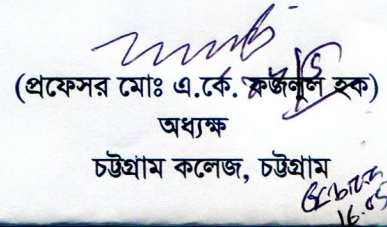 (প্রফেসর মোঃ এ.কে. ফজলুল হক)
অধ্যক্ষ
চট্টগ্রাম কলেজ, চট্টগ্রাম